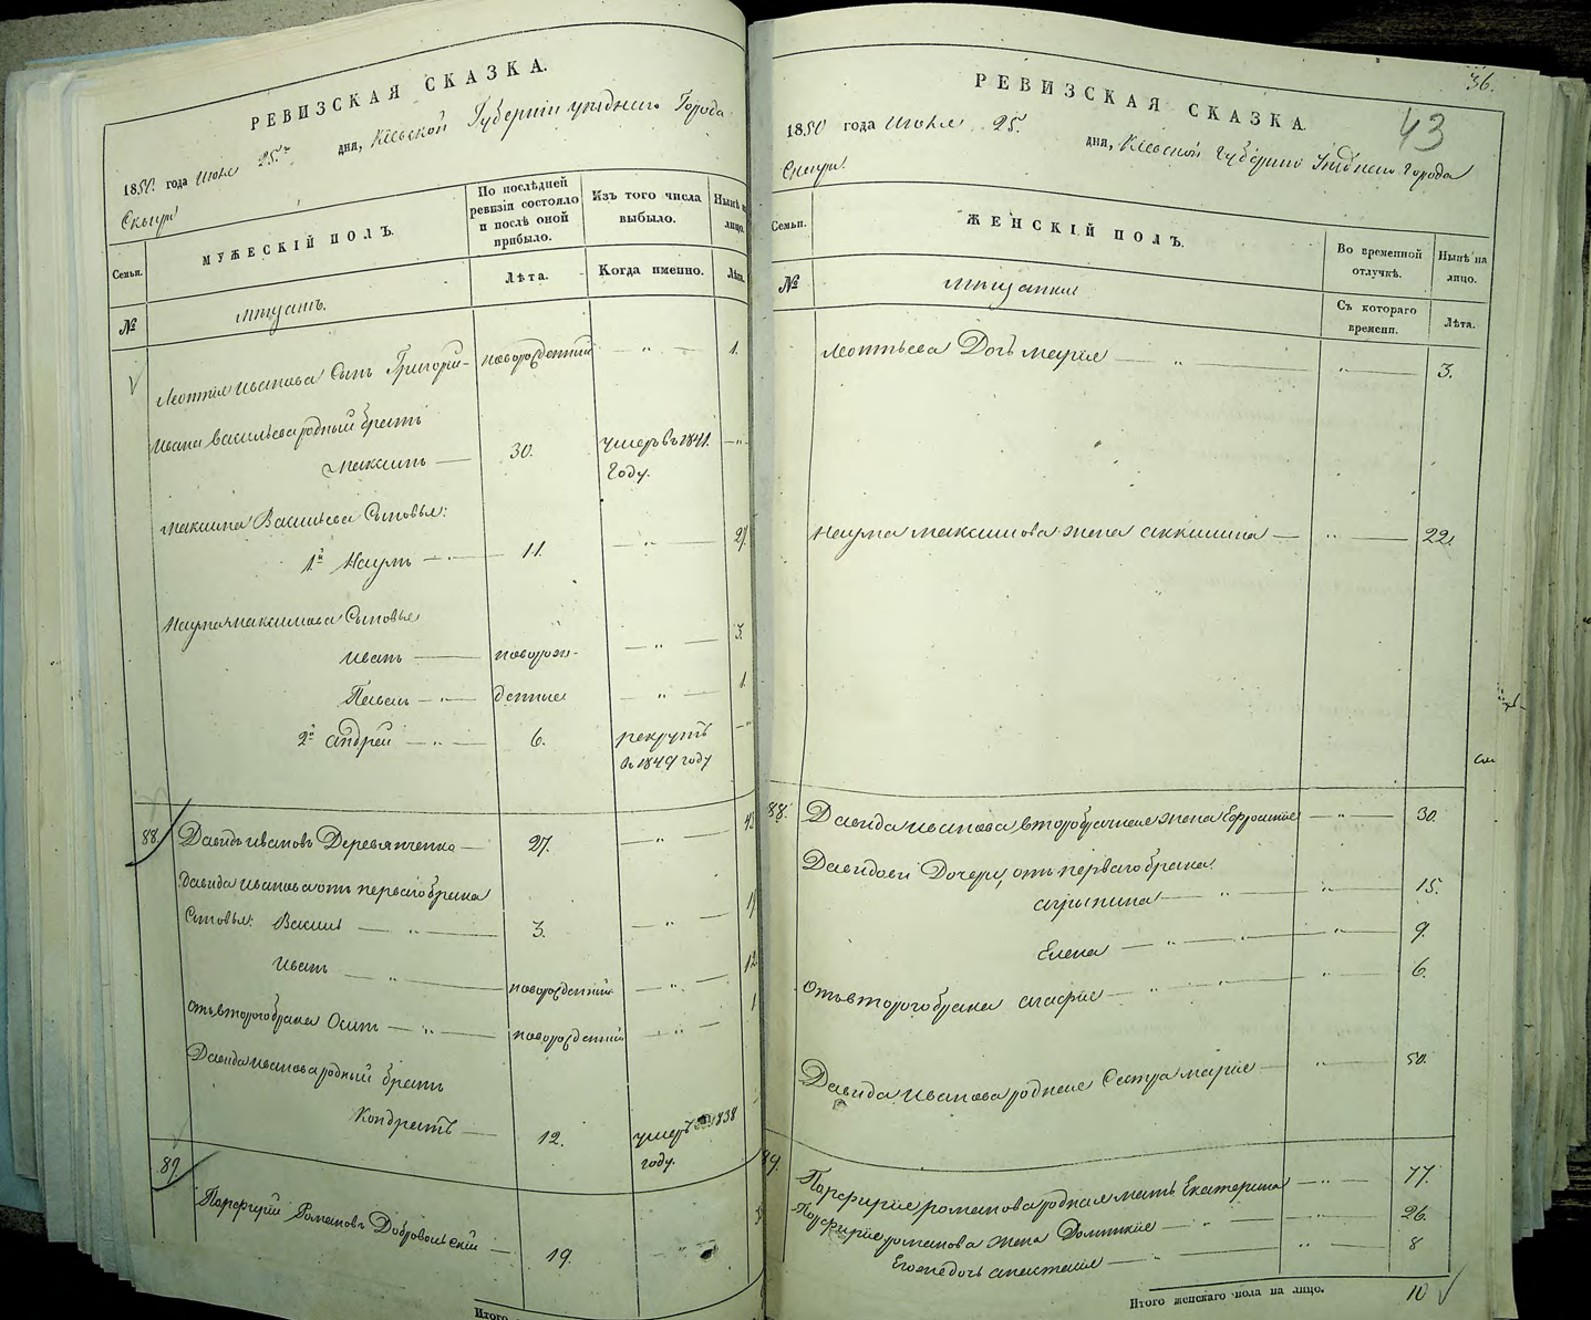 РЕВИЗСКАЯ СКАЗКА.
1850 года Июня 25го дня, Кіевской Губерніи уѣзднаго Города
Сквыри
Семьи.
МУЖЕСКІЙ ПОЛЪ.
По послѣдней ревизіи состояло и послѣ оной прибыло.
Изъ того числа выбыло.
Нынѣ на лицо.
№
мѣщанъ.
Лѣта.
Когда именно.
Лѣта.
Леонтія Иванова Сынъ Григорій - новорожденный — " — 1.
Ивана Васильева родный братъ
Максимъ — 30. умеръ въ 1841. — " -
Году.
Максима Васильева Сыновья:
1й Наумъ — " — 11. — " —
Наума Максимова Сыновья
Иванъ — новорож- — " — 3.
Павелъ — " — денные — " — 1.
2й Андрей — " — 6. рекрутъ
в 1849 году
88. Давидъ Ивановъ Деревянченко — 27. — " —
Давида Иванова отъ перваго брака
Сыновья: Василій — " — 3. — " —
Иванъ — " — новорожденный — " — 12.
Отъ втораго брака Осипъ — " — новорожденный — " — 1
Давида Иванова родный братъ
Кондратъ — 12. умеръ 1838
году.
89. Порфирій Романовъ Добровольскій — 19.
Итого
36.
43
РЕВИЗСКАЯ СКАЗКА.
1850 года Июня 25. дня, Кіевской Губерніи Уѣзднаго города
Сквыри.
Семьи.
ЖЕНСКІЙ ПОЛЪ.
Во временной отлучкѣ.
Нынѣ на лицо.
№
мѣщанки
Съ котораго времени.
Лѣта.
Леонтьева Дочь Марія — " — " — 3.
Наума Максимова жена Акилина — " — 22.
88. Давида Иванова второбрачная жена Ефросинія — " — 30.
Давидови Дочери, отъ перваго брака:
Агрипина — " — " — 15.
Елена — " — " — 9.
Отъ втораго брака Агафія — " — " — 6.
Давида Иванова родная Сестра Марія — " — 50.
89. Порфирія Романова родная мать Екатерина — " — 77.
Порфирія Романова жена Домникія — " — " — 26.
Его же дочь Анастасія — " — " — 8
Итого женскаго пола на лицо. 10